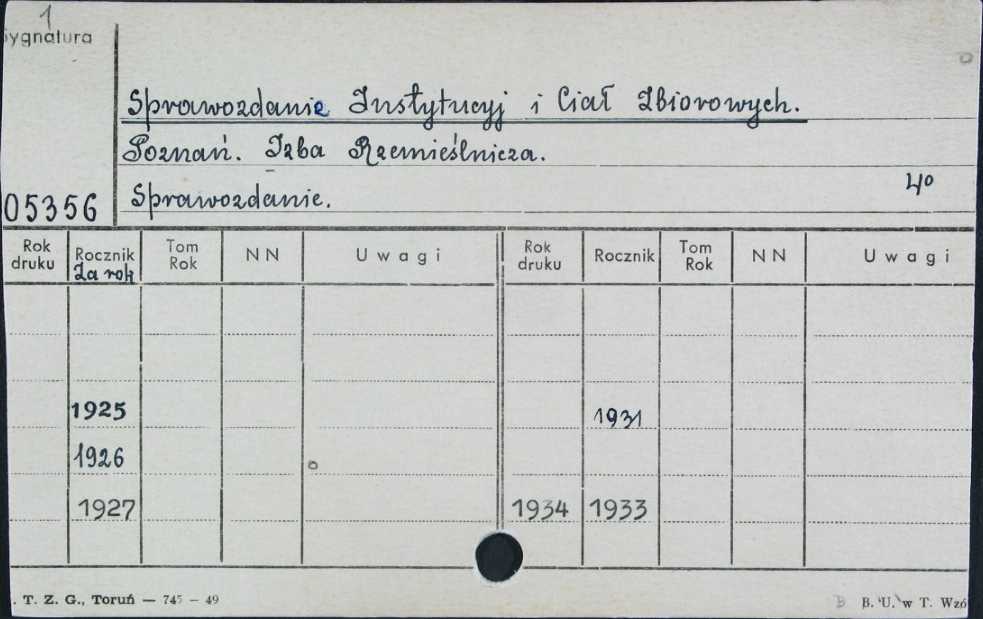 1
Sygnatura
Sprawozdanie Instytucyj i Ciał Zbiorowych.
Poznań. Izba Rzemieślnicza.
Sprawozdanie.
4º
05356
Rok druku Rocznik Za rok Tom Rok NN Uwagi Rok druku Rocznik Tom Rok NN Uwagi
1925 1931
1926
1927 1934 1933
. T. Z. G., Toruń — 745 — 49
B B. U. w T. Wzó